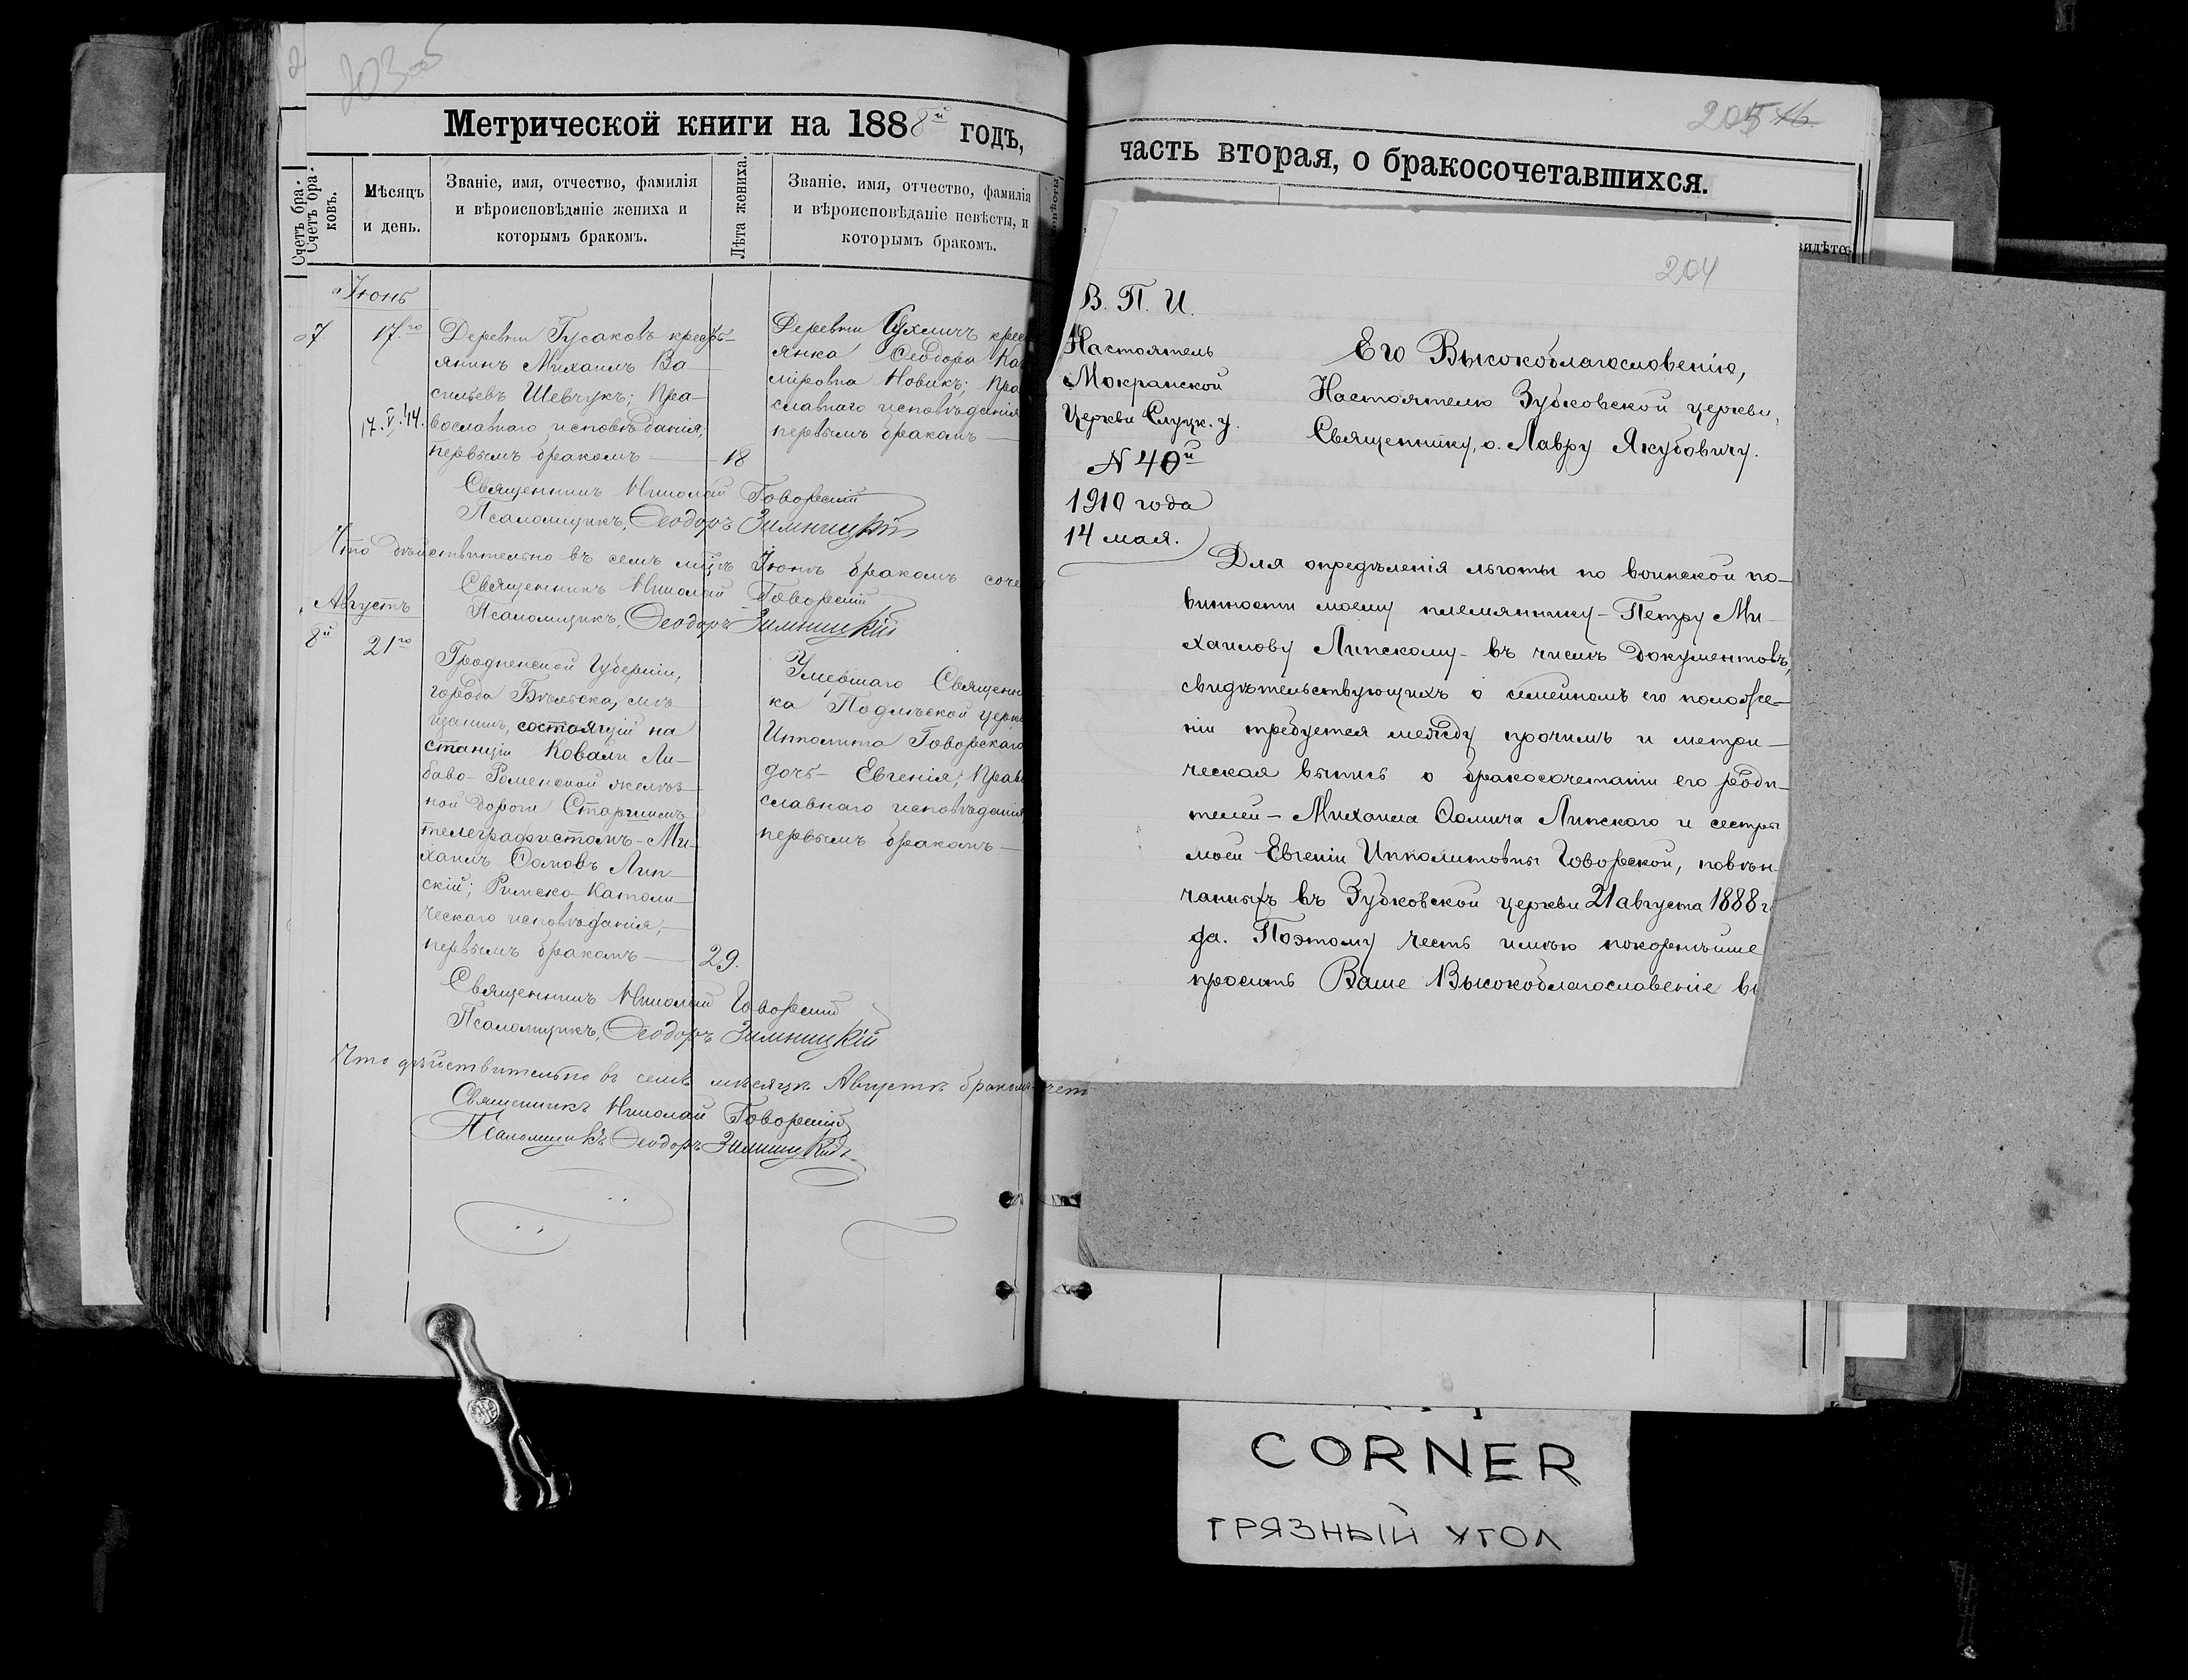 203 об
Метрической книги на 1888й годъ,
Счетъ бра-
Счетъ бра-
ковъ.
Мѣсяцъ
и день.
Званіе, имя, отчество, фамилія
и вѣроисповѣданіе жениха и
которымъ бракомъ.
Лѣта жениха.
Званіе, имя, отчество, фамилія
и вѣроисповѣданіе невѣсты, и
которымъ бракомъ.
Іюнь
7.
17.го
17.V.14.
Деревни Гусаковъ кресть-
янинъ Михаилъ Ва-
сильевъ Шевчукъ; Пра-
вославнаго исповѣданія,
первымъ бракомъ
18
Деревни Сухличъ крес
янка Ѳеодора Ка
міровна Новикъ; Пра
славнаго исповѣданія
первымъ бракомъ
Священникъ Николай Говорскій
Псаломщикъ, Ѳеодоръ Зимницкій
Что дѣйствительно въ семъ мцѣ Іюнѣ бракомъ соче
Священникъ Николай Говорскій
Псаломщикъ, Ѳеодоръ Зимницкій
Августъ
8й
21го
Гродненской Губерніи,
города Бѣльска, мѣ-
щанинъ, состоящій на
станціи Ковали Ли-
баво-Роменской желѣз-
ной дороги Старшимъ
телеграфистомъ - Ми-
хаилъ Ѳомовъ Лип-
скій; Римско-Католи-
ческаго исповѣданія,
первымъ бракомъ
29.
Умершаго Священни
ка Подлѣской церкв
Ипполита Говорскаго
дочь - Евгенія; Прав
славнаго исповѣданія
первымъ бракомъ
Священникъ Николай Говорскій
Псаломщикъ, Ѳеодоръ Зимницкій
Что дѣйствительно въ семъ мѣсяцѣ Августѣ бракомъ
Священникъ Николай Говорскій
Псаломщикъ Ѳеодоръ Зимницкій
205
часть вторая, о бракосочетавшихся.
видѣте
204
В. П. И.
Настоятель
Мокранской
Церкви Слуцк. у.
N 40й
1910 года
14 мая.
Его Высокоблагословенію,
Настоятелю Зубковской церкви,
Священнику, о. Лавру Якубовичу.
Для опредѣленія льготы по воинской по-
винности моему племяннику - Петру Ми-
хаилову Липскому - въ числѣ документовъ,
свидѣтельствующихъ о семейномъ его положе-
ніи требуется между прочимъ и метри-
ческая выпись о бракосочетаніи его роди-
телей - Михаила Ѳомича Липскаго и сестры
моей Евгеніи Ипполитовны Говорской, повѣн-
чанныхъ въ Зубковской церкви 21 августа 1888 г
да. Поэтому честь имѣю покорнѣйше
просить Ваше Высокоблагословеніе вы
CORNER
ГРЯЗНЫЙ УГОЛ